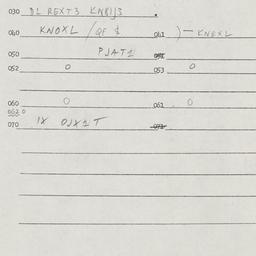 030 DL REXT3 KNRIJ3
040 KNOXL / QF $ 041 ) - KNEXL
050 PJAT1 051
052 0 053 0
060 0 061 0
062 0
070 IX OJX1T 071